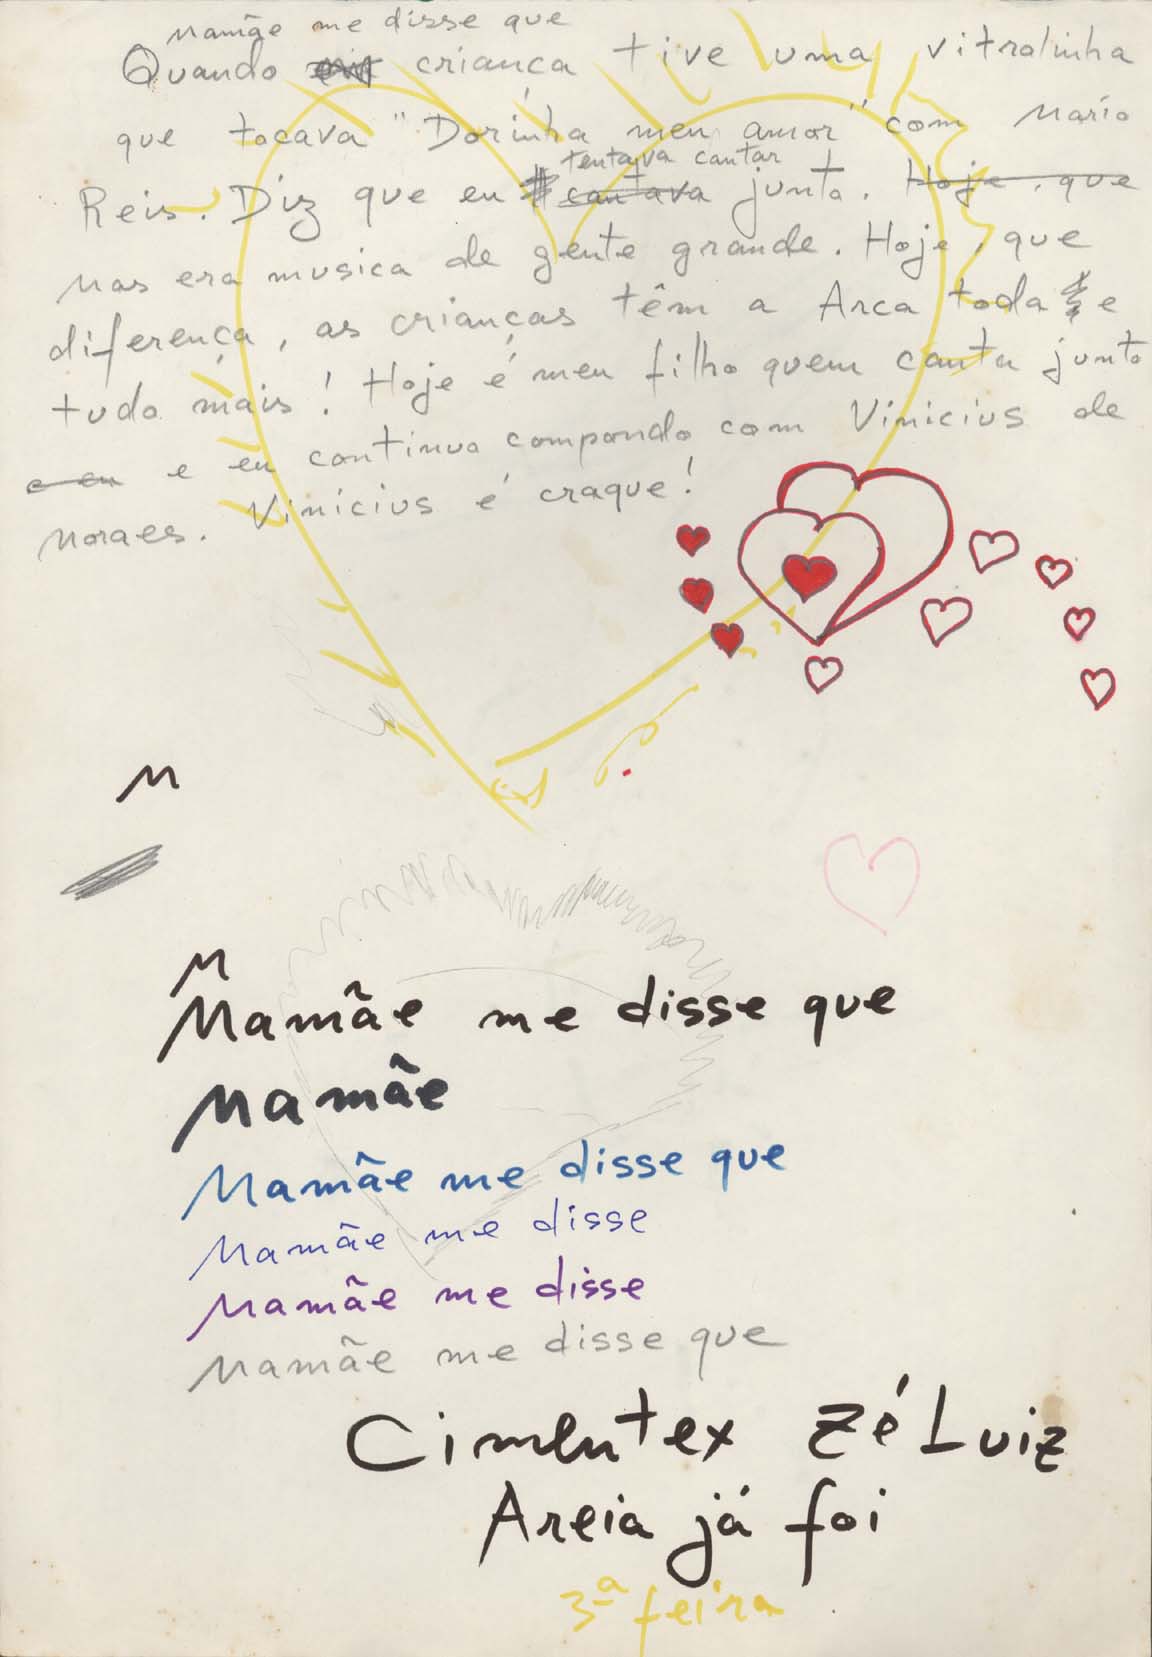 Mamãe me disse que
Quando criança tive uma vitrolinha
que tocava "Dorinha meu amor" com Mario
tentava cantar
Reis. Diz que eu cantava junto. Hoje, que
mas era musica de gente grande. Hoje, que
diferença, as crianças têm a Arca toda e
tudo mais! Hoje é meu filho quem canta junto
e eu e eu continuo compondo com Vinicius de
Moraes. Vinicius é craque!
M
M
Mamãe me disse que
Mamãe
Mamãe me disse que
Mamãe me disse
Mamãe me disse
Mamãe me disse que
Cimentex Zé Luiz
Areia já foi
3ª feira